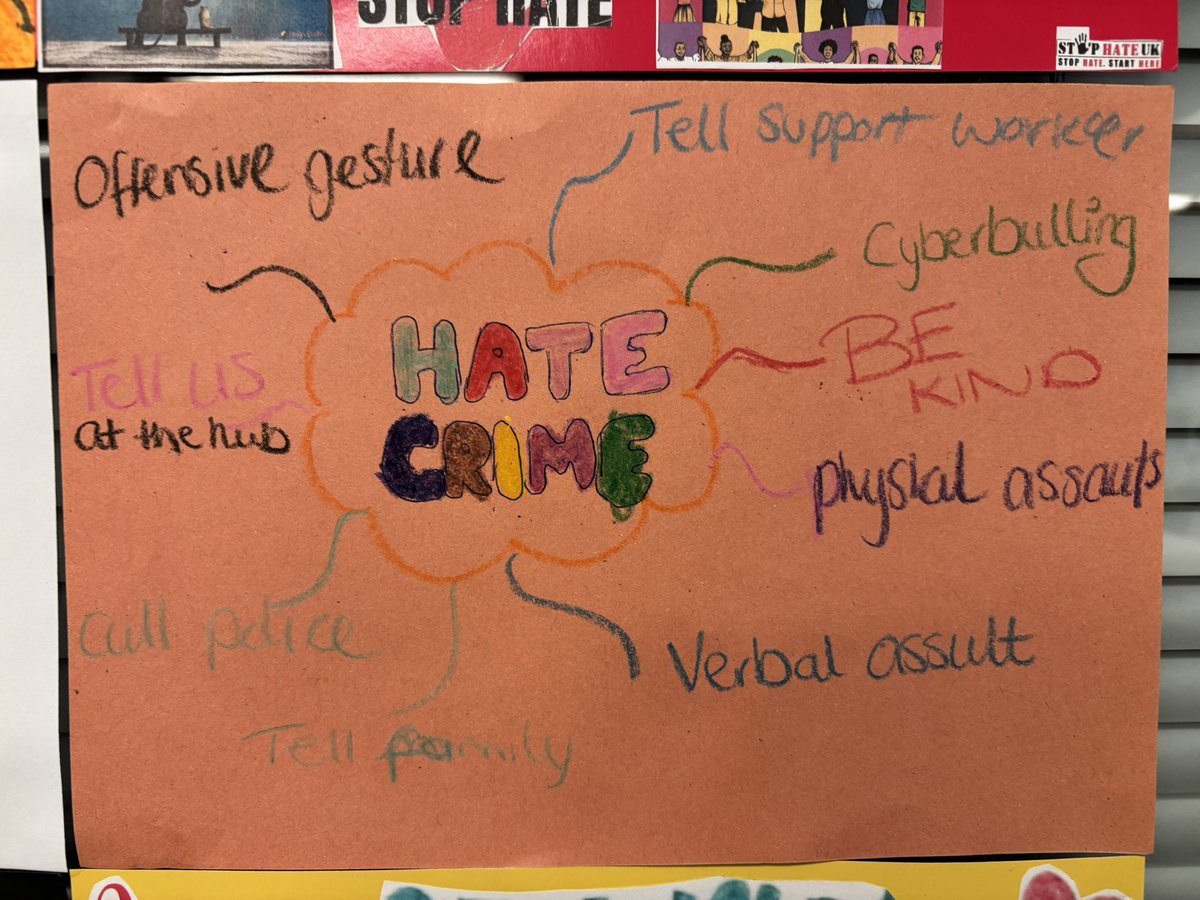 STOP HATE
STOP HATE UK
STOP HATE. START HERE
Offensive gesture
Tell support workeer
Cyberbulling
HATE
CRIME
BE
KIND
Tell us
at the hub
physkal assauts
Call police
Verbal assult
Tell family